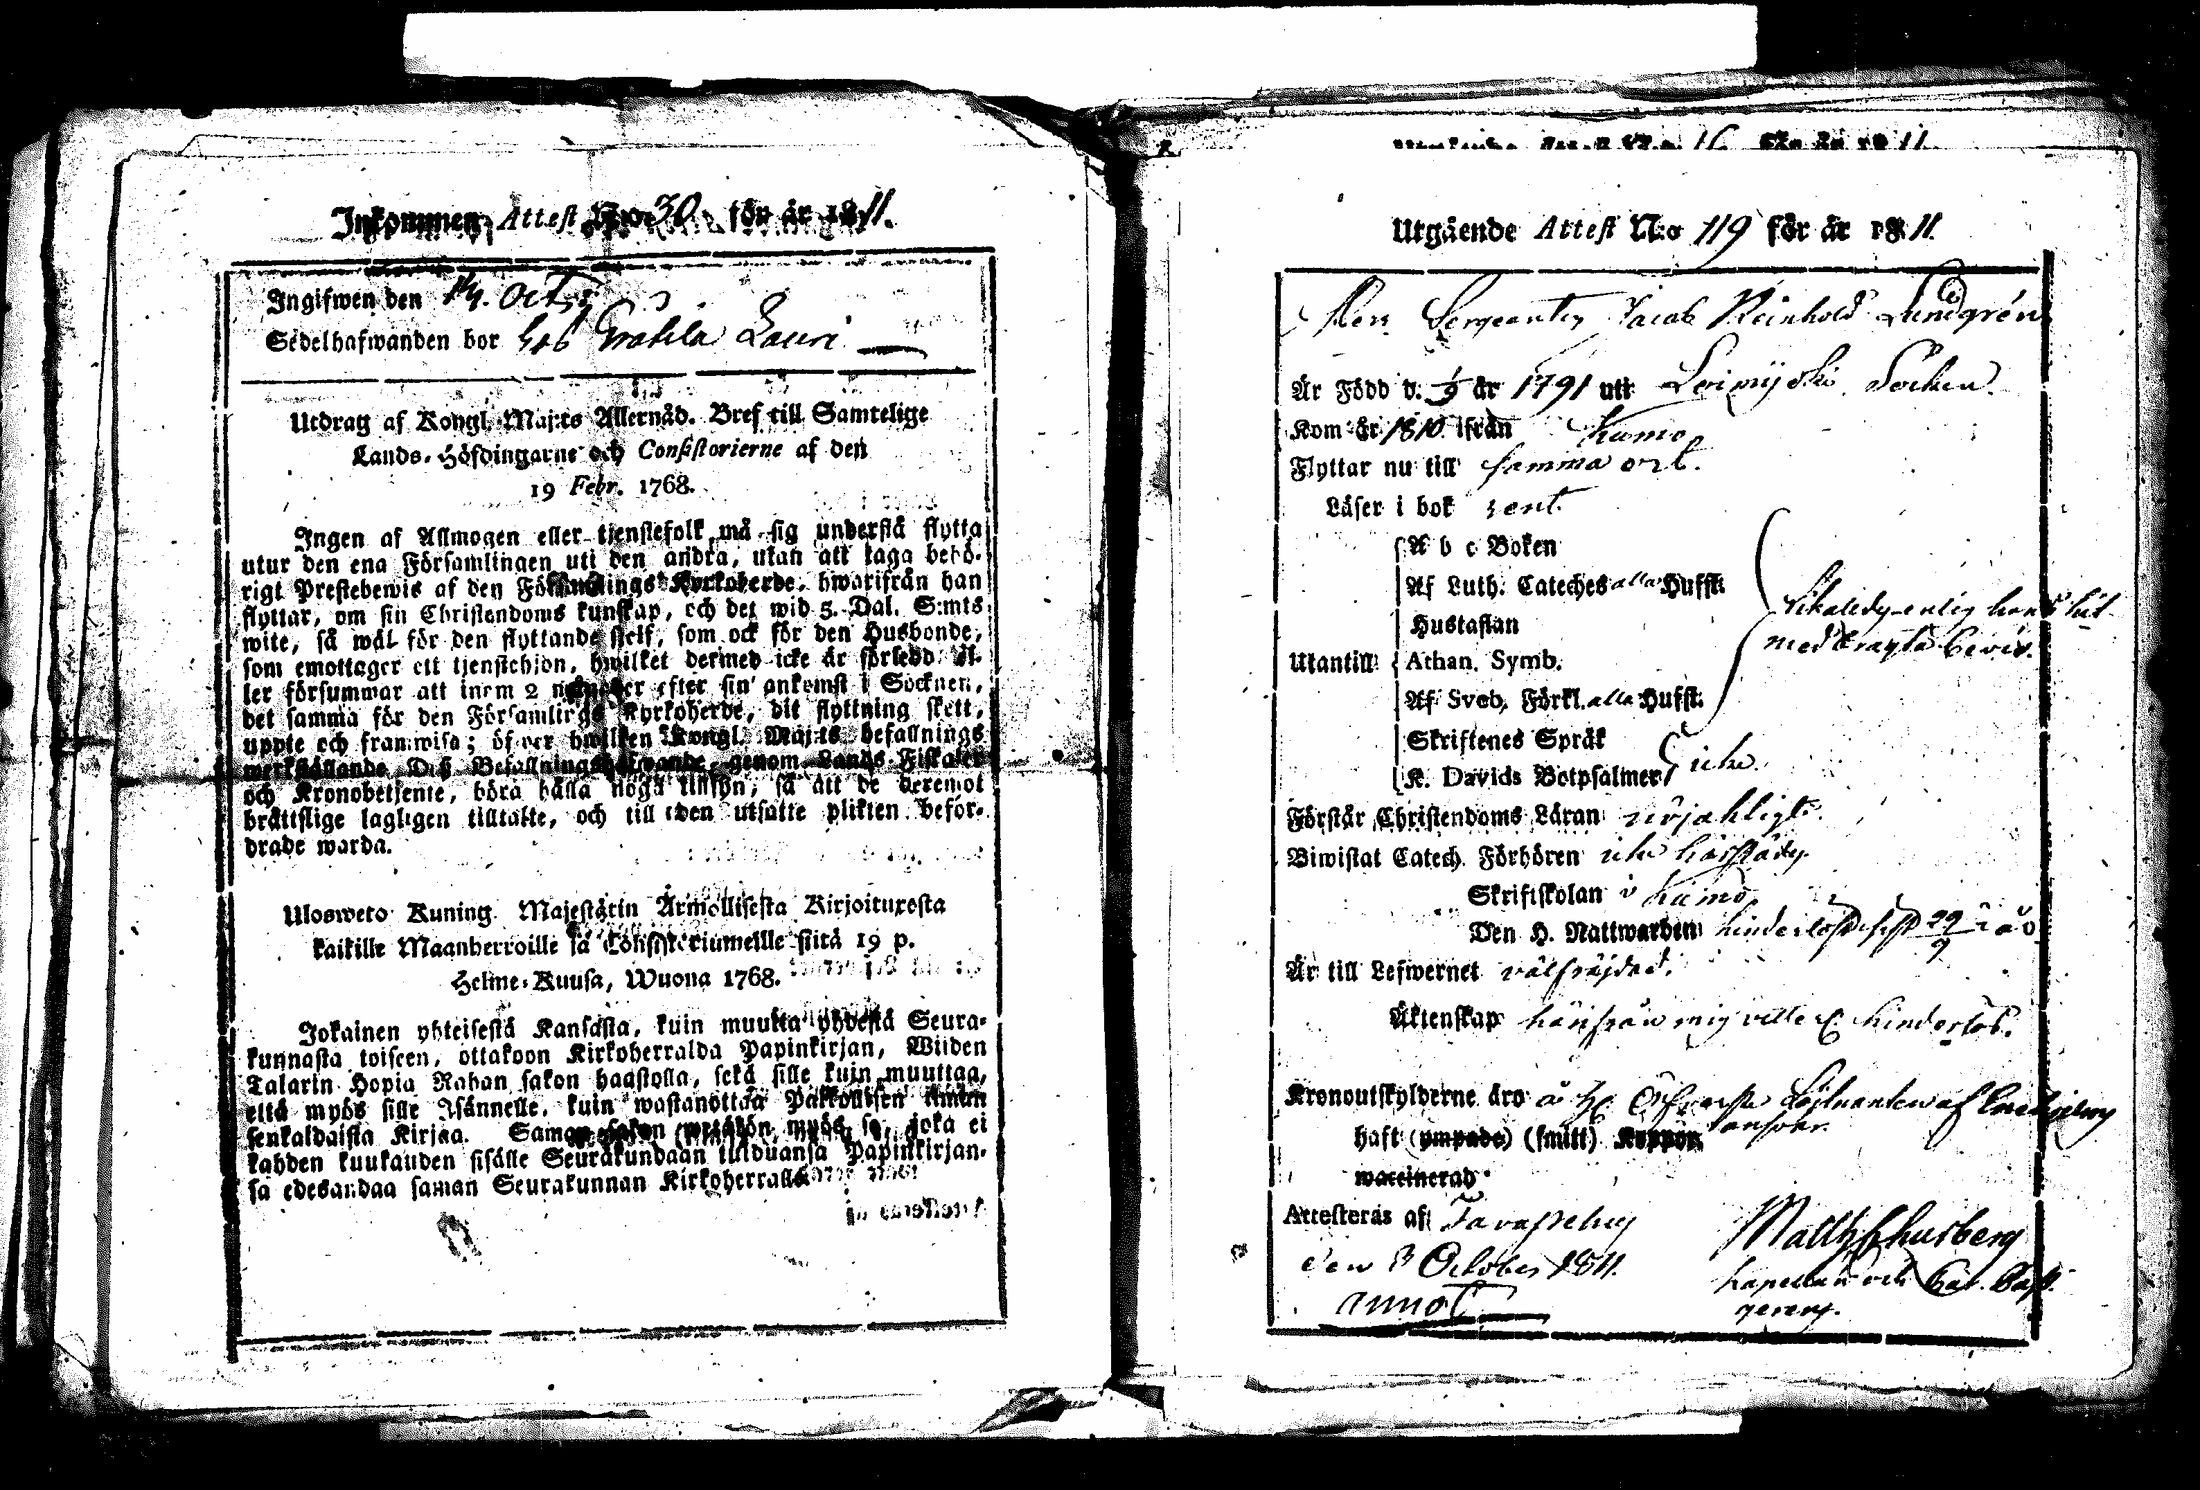 Inkommen Attest N:o 30. för år 1811.
Ingifwen den 14. Oct:
Sedelhafwanden bor hos Lauri
Utdrag af Kongl. Maj:ts Allernåd. Bref till Samtelige
Lands-Höfdingarne och Consistorierne af den
19 Febr. 1768.
Ingen af Allmogen eller tjenstefolk må sig understå flytta
utur den ena Församlingen uti den andra, utan att taga behö-
rigt Prestebewis af den Församlings Kyrkoherde, hwarifrån han
flyttar, om sin Christendoms kunskap, och det wid 5. Dal. S:mts
wite, så wäl för den flyttande sielf, som ock för den Husbonde,
som emottager ett tjenstehjon, hwilket dermed icke är försedd el-
ler försummar att inom 2 månader efter sin ankomst i Socknen,
det samma för den Församlings Kyrkoherde, dit flyttning skett,
uppte och framwisa; öfwer hwilken Kongl. Maj:ts befallnings
werkställande Dess Befallningshafwande, genom Lands Fiskaler
och Kronobetjente, böra hålla noga tillsyn, så att de deremot
bråttslige lagligen tilltalte, och till den utsatte plikten befor-
drade warda.
Ulosweto Kuning. Majestätin Armollisesta Kirjoituxesta
kaikille Maanherroille ja Consistoriumeille siitä 19 p.
Helme-Kuusa, Wuona 1768.
Jokainen yhteisestä Kansasta, kuin muutta yhdestä Seura-
kunnasta toiseen, ottakoon Kirkoherralda Papinkirjan, Wiiden
Talarin Hopia Rahan sakon haastolla, sekä sille kuin muuttaa,
että myös sille Isännelle, kuin wastanottaa Palkollisen ilman
senkaldaista Kirjaa. Saman sakon wetäkön myös se, joka ei
kahden kuukauden sisälle Seurakundaan tulduansa Papinkirjan-
sa edesandaa saman Seurakunnan Kirkoherralle.
Utgående Attest N:o 119 för år 1811.
Herr Sergeanten Jacob Reinhold Lundgrén
Är Född d. 1/9 år 1791 uti Loimijoki Socken.
Kom år 1810. ifrån Kumo
Flyttar nu till samma ort.
Läser i bok rent
A b c Boken
Af Luth. Cateches alla Hufst.
Hustaflan
Utantill Athan. Symb.
Af Sveb. Förkl. alla Hufst.
med bragta bevis.
Skriftenes Språk
K. Davids Botpsalmer icke
Förstår Christendoms Läran
Biwistat Catech. Förhören icke härstädes
Skriftskolan i Kumo
Den H. Nattwarden sist 29/9
Är till Lefwernet välfräjdad.
Äktenskap härifrån mig vetterl. hinderlös.
Kronoutskylderne äro å H. Öfverste Löjtnanten af
ansvar.
haft (ympade) (smitt) Koppor
waccinerad
Attesteras af Tavastehus
den 3 October 1811.
annot
Matth.
Kapellan och